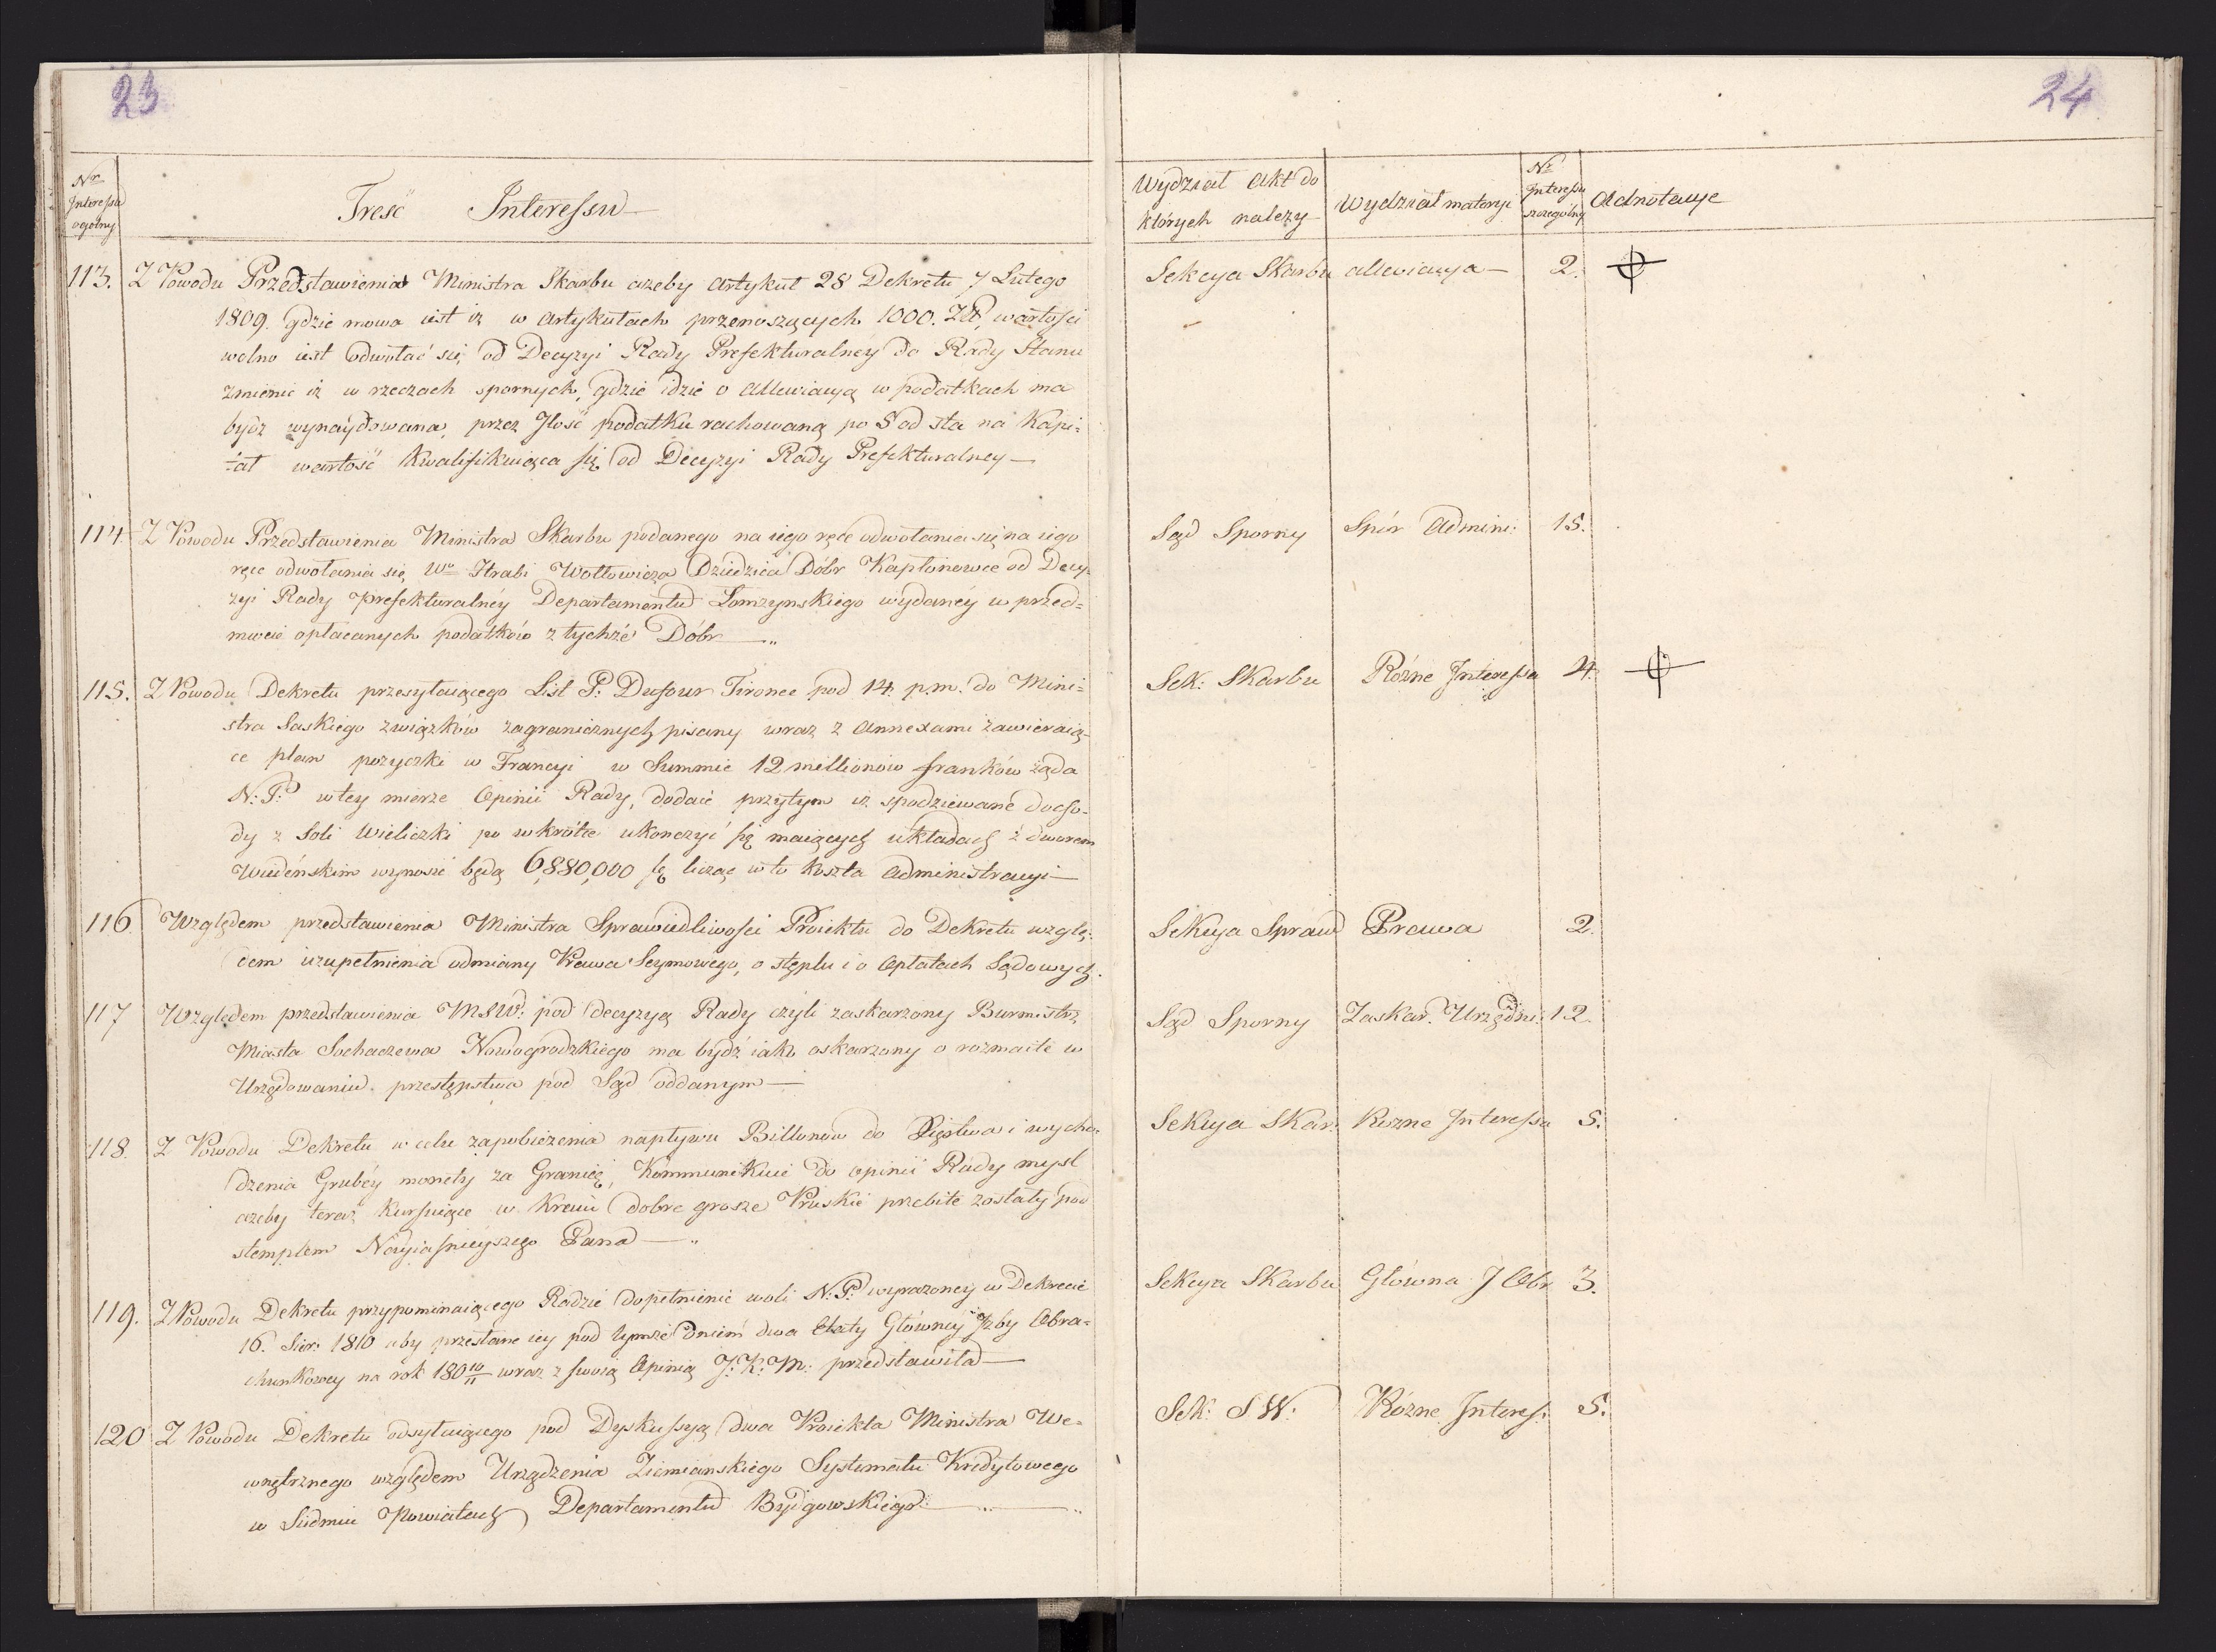 23
24
Nr
Interessu
ogólny
Treść Interessu
Wydział Akt do
których należy
Wydział materyi
Nr
Interessu
szczególny
Adnotacye
113. Z Powodu Przedstawienia Ministra Skarbu ażeby Artykuł 28 Dekretu 7 Lutego
1809. gdzie mowa iest iż w Artykułach przenoszących 1000. Zł, wartości
wolno iest odwołać się od Decyzyi Rady Prefekturalnéy do Rady Stanu
zmienić iż w rzeczach spornych, gdzie idzie o Allewiacyą w podatkach ma
bydź wynaydowana, przez Jlość podatku rachowaną po 5 od sta na Kapi-
tał wartość kwalifikuiąca się od Decyzyi Rady Prefekturalney —
Sekcya Skarbu Allewiacya — 2.
114 Z Powodu Przedstawienia Ministra Skarbu podanego na iego ręce odwołania się na iego
ręce odwołania się Wo Hrabi Wołłowicza Dziedzica Dóbr Kapłonowce od Decy-
zyi Rady Prefekturalnéy Departamentu Łomzynskiego wydanéy w przed-
miocie opłacanych podatków z tychże Dóbr —
Sąd Sporny Spór Admini: 15.
115. Z Powodu Dekretu przesyłaiącego List P: Dufour Tironee pod 14. p.m. do Mini-
stra Saskiego związków zagranicznych pisany wraz z Annexami zawieraią-
ce plan pożyczki w Francyi w Summie 12 millionów franków żąda
N: P: w tey mierze Opinii Rady, dodaie przytym iż spodziewane docho-
dy z Soli Wieliczki po wkrótce ukonczyć się maiących układach z dworem
Wiedeńskim wynosić będą 6,880,000 licząc w to koszta Administracyi —
Sek: Skarbu Rózne Interessa 4.
116. Względem przedstawienia Ministra Sprawiedliwości Proiektu do Dekretu wzglę-
dem uzupełnienia odmiany Prawa Seymowego, o stęplu i o Opłatach Sądowych.
Sekcya Spraw Prawa 2.
117 Względem przedstawienia MSW: pod decyzyą Rady czyli zaskarzony Burmistrz
Miasta Sochaczewa Nowogrodzkiego ma bydź iako oskarzony o rozmaite w
Urzędowaniu przestępstwa pod Sąd oddanym —
Sąd Sporny Zaskar. Urzędni: 12.
118. Z Powodu Dekretu w celu zapobieżenia napływu Billonów do Xięstwa i wycho-
dzenia Grubéy monety za Granicę, Kommunikuie do opinii Rady mysl
ażeby teraz kursuiące w Kraiu dobre grosze Pruskie przebite zostały pod
stemplem Nayiaśnieyszego Pana —
Sekcya Skar: Rozne Interessa 5.
119. Z Powodu Dekretu przypominaiącego Radzie dopełnienie woli N: P: wyrazoney w Dekrecie
16. Sier: 1810 aby przesłane iey pod tymże dniem dwa Etaty Główney Izby Obra-
chunkowey na rok 180 10/11 wraz z swoią Opinią J: K: M: przedstawiła —
Sekcya Skarbu Główna I Obr 3.
120 Z Powodu Dekretu odsyłaiącego pod Dyskussyą dwa Proiekta Ministra We-
wnętrznego względem Urządzenia Ziemianskiego Systematu Kredytowego
w Siedmiu Powiatach Departamentu Bydgowskiego —
Sek: SW: Rózne Interes: 5.